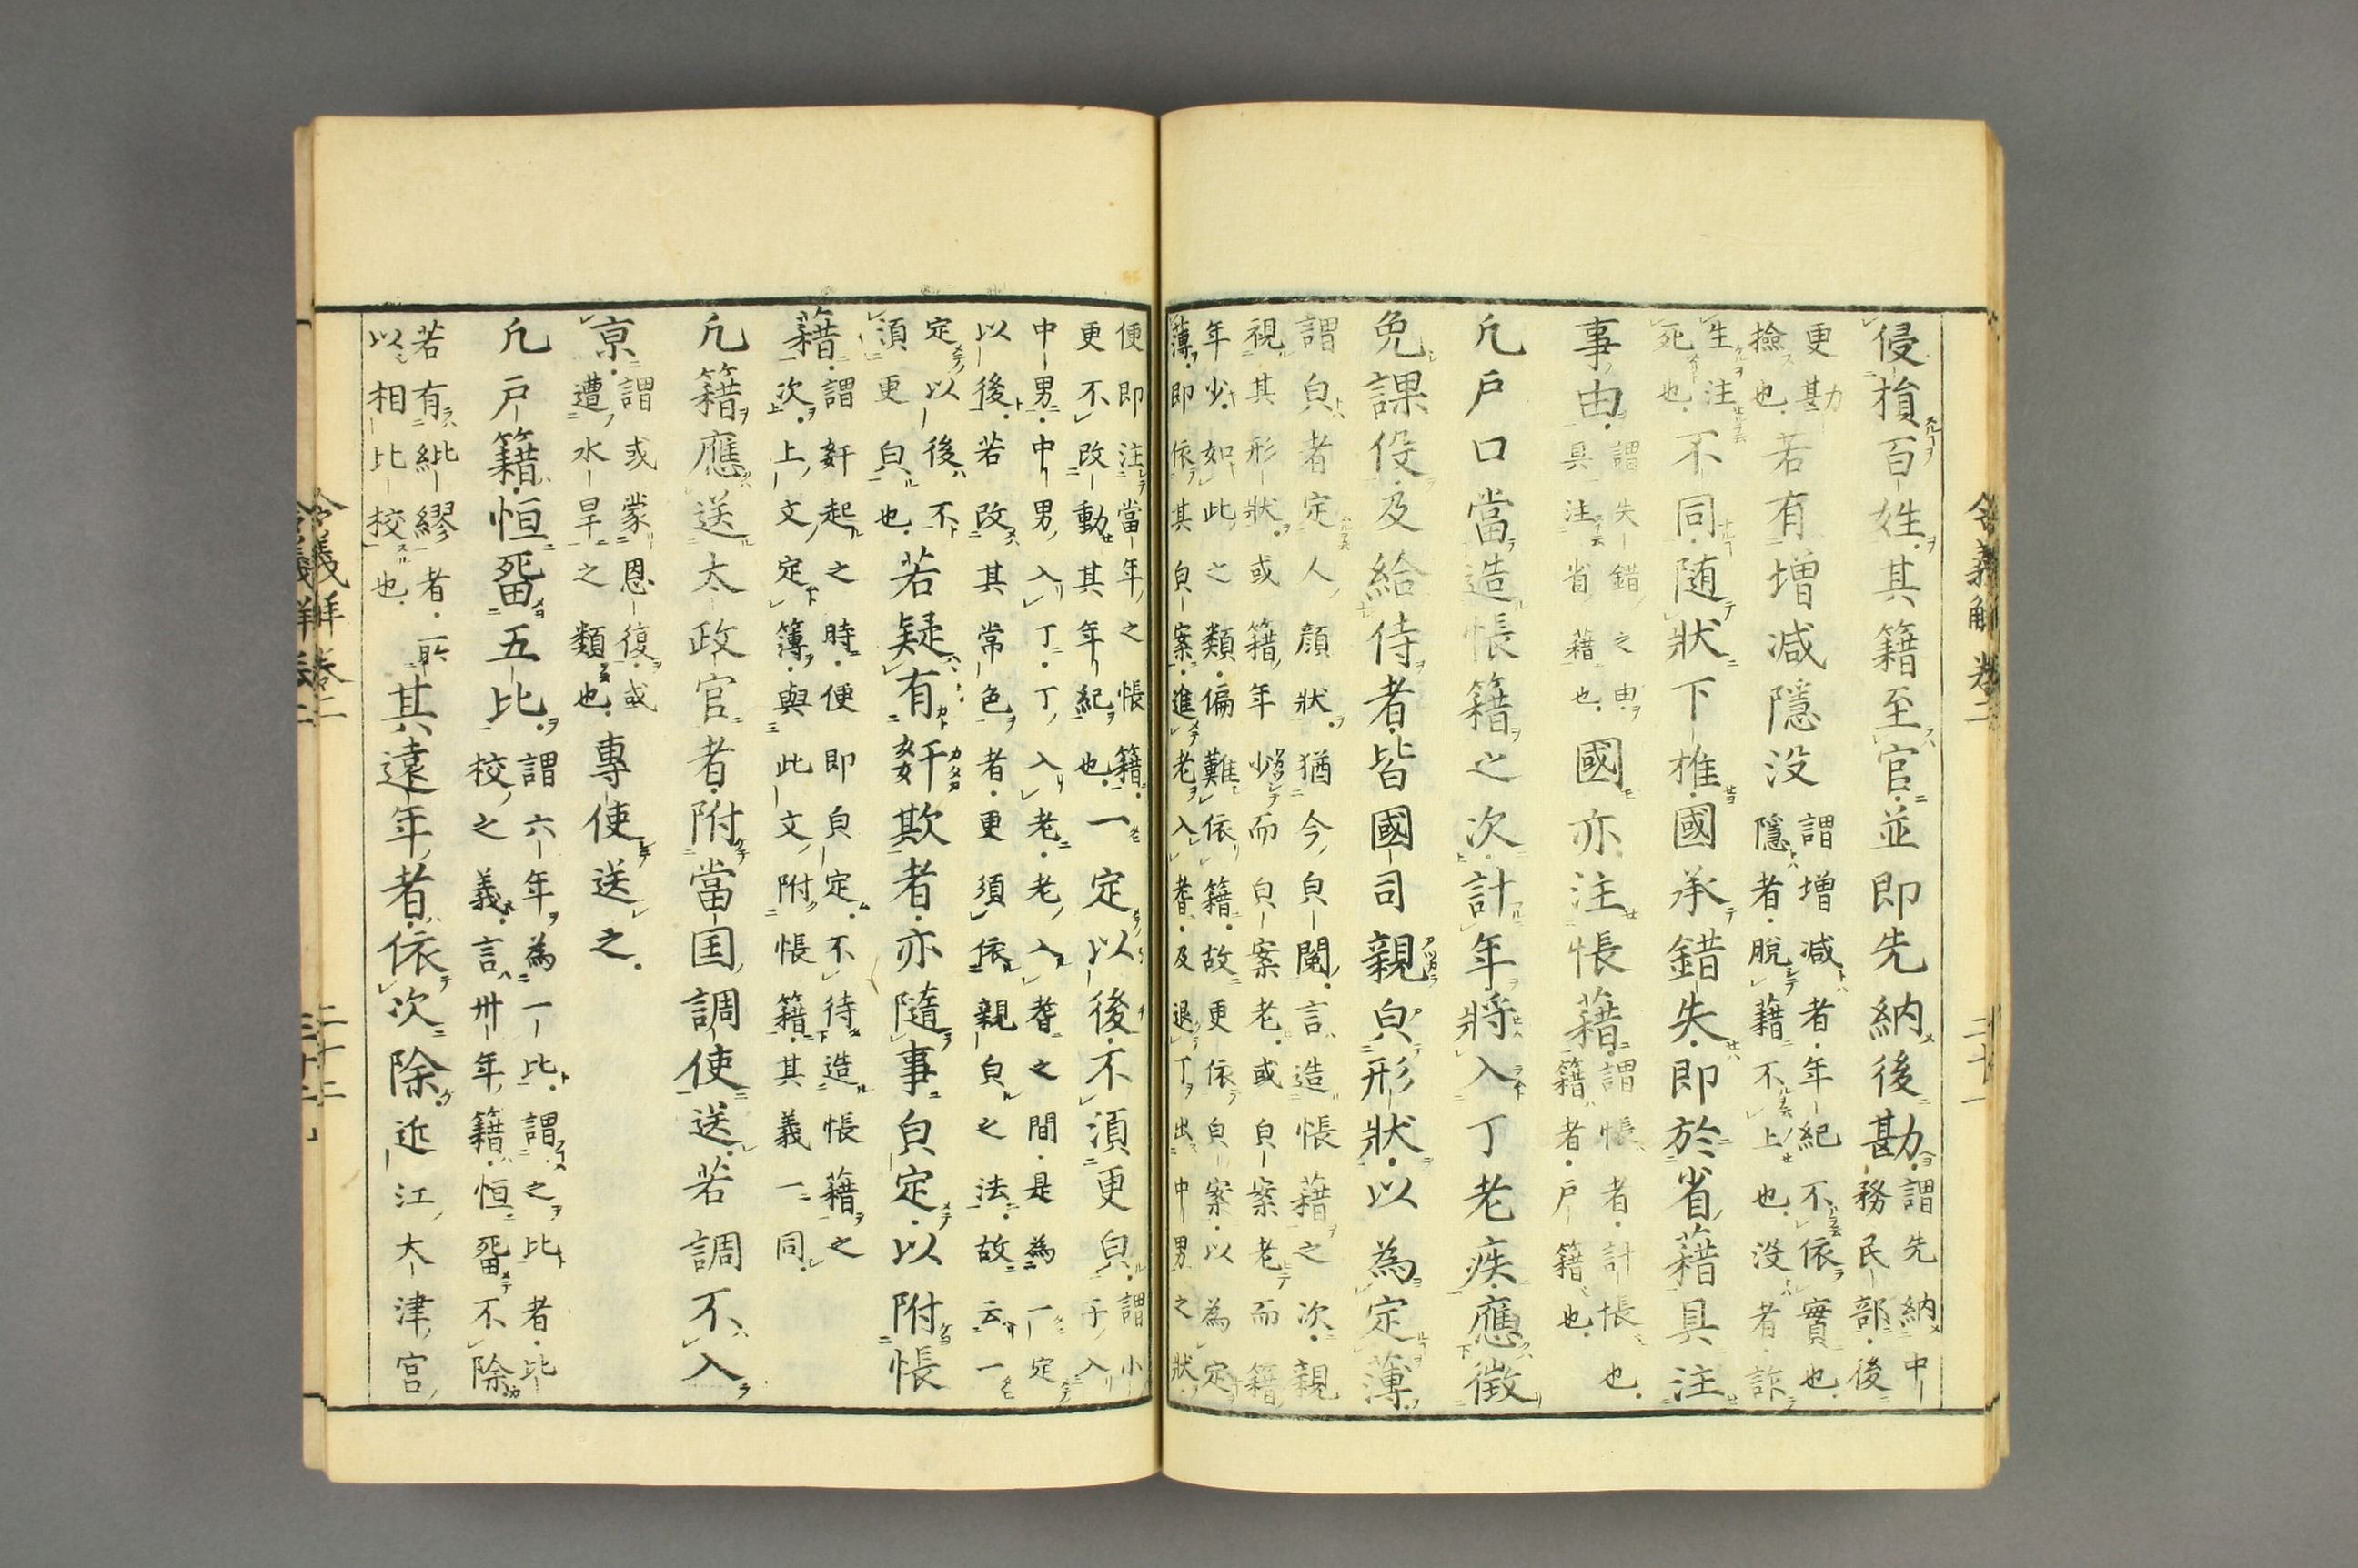 令義解卷二
二十一
侵損百姓其籍至官並即先納後勘謂先納中務民部後
更勘撿也若有增減隱没謂增減者年紀不依實也隱者脫籍不上也没者詐
生注死也不同随狀下推國承錯失即於省籍具注
事由謂失錯之由具注省籍也國亦注帳籍謂帳者計帳也籍者戶籍也
凢戶口當造帳籍之次計年將入丁老疾應徵
免課役及給侍者皆國司親皃形狀以為定薄
謂皃者定人顔狀猶今皃閱言造帳籍之次親
視其形狀或籍年少而皃案老或皃案老而籍
年少如此之類偏難依籍故更依皃案以為定
薄即依其皃案進老入耆及退丁出中男之狀
便即注當年之帳籍一定以後不須更皃謂小子入
更不改動其年紀也
中男中男入丁丁入老老入耆之間是為一定
以後若改其常色者更須依親皃之法故云一
定以後不須更皃也若疑有姧欺者亦隨事皃定以附帳
籍謂姧起之時便即皃定不待造帳籍之次上文定簿與此文附帳籍其義一同
凢籍應送太政官者附當国調使送若調不入
京謂或蒙恩復或遭水旱之類也專使送之
凢戶籍恒畱五比謂六年為一比謂之比者比校之義言卅年籍恒畱不除
若有紕繆者所以相比校也其遠年者依次除近江大津宮
令義解卷二
二十二